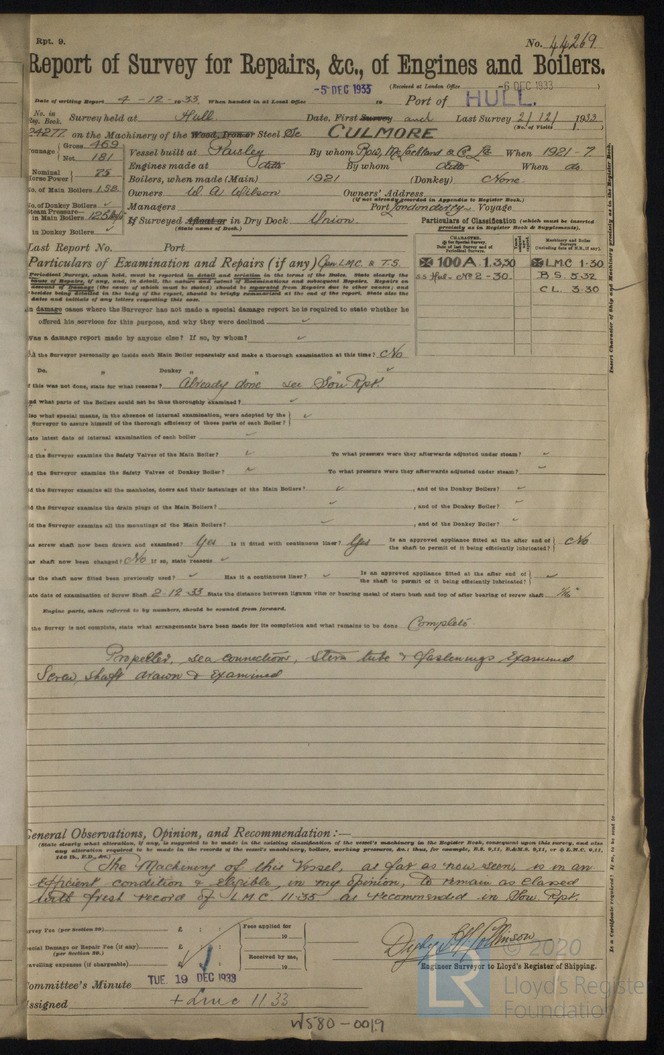 Rpt. 9.
No. 44269
Report of Survey for Repairs, &c., of Engines and Boilers.
-5 DEC 1933 (Received at London Office -6 DEC 1933 )
Date of writing Report 4-12-1933 When handed in at Local Office 19 Port of HULL.
No. in Reg. Book. Survey held at Hull Date, First Survey and Last Survey 2/12/1933
(No. of Visits 1 )
24277 on the Machinery of the Wood, Iron or Steel Sc CULMORE
Tonnage { Gross 469 Net 181
Vessel built at Paisley By whom Bow, McLachlan & Co. Ld. When 1921-7
Engines made at ditto By whom ditto When do
Nominal Horse Power 75 Boilers, when made (Main) 1921 (Donkey) None.
No. of Main Boilers 1SB. Owners W A Wilson Owners' Address
(If not already recorded in Appendix to Register Book.)
No. of Donkey Boilers Managers Port Londonderry Voyage
Steam Pressure in Main Boilers If Surveyed Afloat or in Dry Dock Union.
(State name of Dock.)
in Donkey Boilers
Particulars of Classification (which must be inserted precisely as in Register Book & Supplements).
Last Report No. Port
Particulars of Examination and Repairs (if any) L.M.C. & T.S.
✠ 100A.1.3.30 ✠ L.M.C 1.30
S.S. Hull - No 2 - 30. B.S. 5.32
C.L. 3.30
Periodical Surveys, when held, must be reported in detail and seriatim in the terms of the Rules. State clearly the
cause of Repairs, if any, and, in detail, the nature and extent of Examinations and subsequent Repairs. Repairs on
In damage cases where the Surveyor has not made a special damage report he is required to state whether he
offered his services for this purpose, and why they were declined
Was a damage report made by anyone else? If so, by whom?
Did the Surveyor personally go inside each Main Boiler separately and make a thorough examination at this time? No
Do. „ Donkey „ „ „
If this was not done, state for what reasons? Already done see Sou Rpt.
And what parts of the Boilers could not be thus thoroughly examined?
Also what special means, in the absence of internal examination, were adopted by the
Surveyor to assure himself of the thorough efficiency of those parts of each Boiler?
State latest date of internal examination of each boiler
Did the Surveyor examine the Safety Valves of the Main Boiler? To what pressure were they afterwards adjusted under steam?
Did the Surveyor examine the Safety Valves of Donkey Boiler? To what pressure were they afterwards adjusted under steam?
Did the Surveyor examine all the manholes, doors and their fastenings of the Main Boilers? , and of the Donkey Boilers?
Did the Surveyor examine the drain plugs of the Main Boilers? , and of the Donkey Boilers?
Did the Surveyor examine all the mountings of the Main Boilers? , and of the Donkey Boilers?
Has screw shaft now been drawn and examined? Yes Is it fitted with continuous liner? Yes Is an approved appliance fitted at the after end of the shaft to permit of it being efficiently lubricated? No
Has shaft now been changed? No If so, state reasons
Has the shaft now fitted been previously used? Has it a continuous liner? Is an approved appliance fitted at the after end of the shaft to permit of it being efficiently lubricated?
State date of examination of Screw Shaft 2-12-33 State the distance between lignum vitæ or bearing metal of stern bush and top of after bearing of screw shaft 1/16"
Engine parts, when referred to by numbers, should be counted from forward.
If the Survey is not complete, state what arrangements have been made for its completion and what remains to be done Complete
Propeller, sea connections, stern tube & fastenings Examined
Screw shaft drawn & Examined
General Observations, Opinion, and Recommendation:—
(State clearly what alteration, if any, is suggested to be made in the existing classification of the vessel's machinery in the Register Book, consequent upon this survey, and also
any alteration required to be made in the records of the vessel's machinery, boilers, working pressures, &c.: thus, for example, B.S. 9,11, B.&M.S. 9,11, or ✠ L.M.C. 9,11,
140 lb., F.D., &c.)
The Machinery of this Vessel, as far as now seen, is in an
efficient condition & eligible, in my opinion, to remain as Classed
with fresh record of L.M.C. 11.33 as recommended in Sou Rpt.
Survey Fee (per Section 29) £ : : Fees applied for 19
Special Damage or Repair Fee (if any) (per Section 29.) £ : :
Travelling expenses (if chargeable) £ : : Received by me, 19
Engineer Surveyor to Lloyd's Register of Shipping.
Committee's Minute TUE. 19 DEC 1933
Assigned + LMC 11 33
W580-0019
© 2020
Lloyd's Register
Foundation
LR